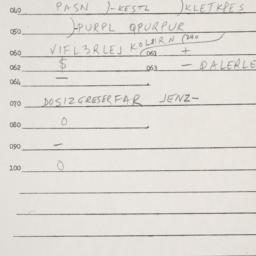 040 PASN )-KESTL )KLETKPES
050 )-PURPL QPURPUR
060 VIFL3RLEJ KOLDIRN 240
061 +
062 $ 063 - QALERLE
064 —
070 DOSIZGRESERFAR JENZ-
080 0
090 —
100 0